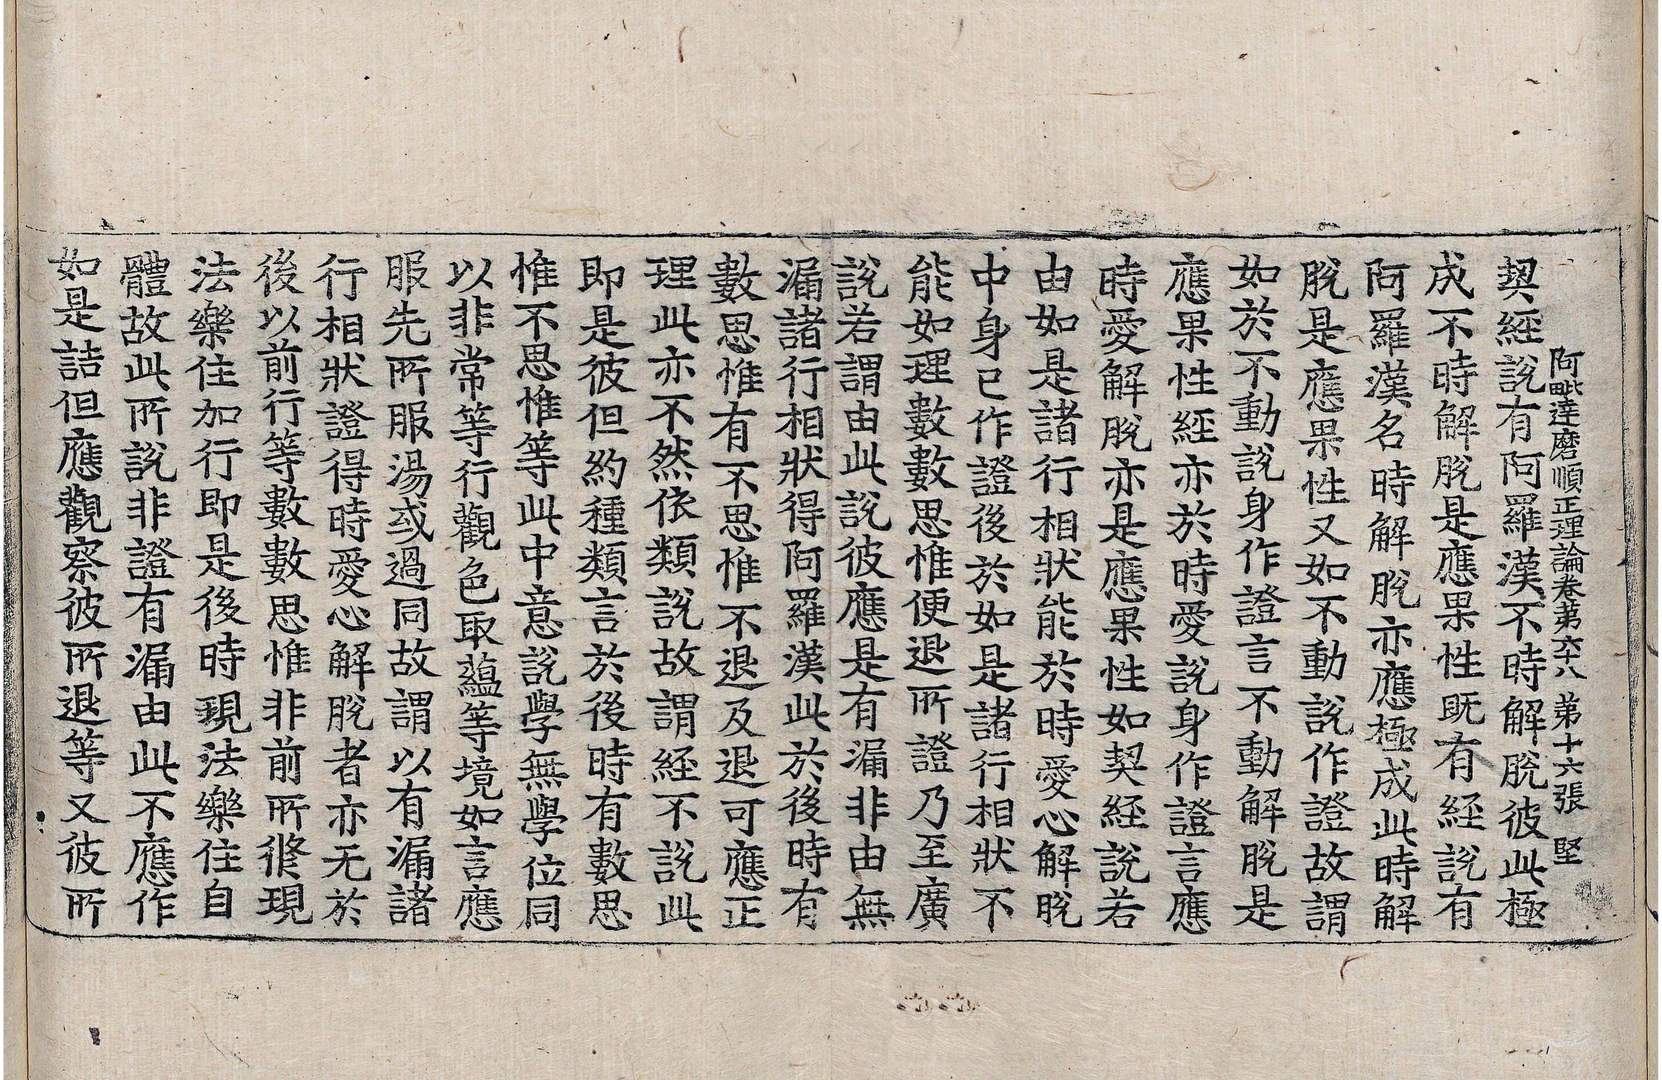 阿毗達磨順正理論卷第六十八 第十六張 堅
契經說有阿羅漢不時解脫彼此極
成不時解脫是應果性既有經說有
阿羅漢名時解脫亦應極成此時解
脫是應果性又如不動說作證故謂
如於不動說身作證言不動解脫是
應果性經亦於時愛說身作證言應
時愛解脫亦是應果性如契經說若
由如是諸行相狀能於時愛心解脫
中身已作證後於如是諸行相狀不
能如理數數思惟便退所證乃至廣
說若謂由此說彼應是有漏非由無
漏諸行相狀得阿羅漢此於後時有
數思惟有不思惟不退及退可應正
理此亦不然依類說故謂經不說此
即是彼但約種類言於後時有數思
惟不思惟等此中意說學無學位同
以非常等行觀色取蘊等境如言應
服先所服湯或過同故謂以有漏諸
行相狀證得時愛心解脫者亦无於
後以前行等數數思惟非前所修現
法樂住加行即是後時現法樂住自
體故此所說非證有漏由此不應作
如是詰但應觀察彼所退等又彼所